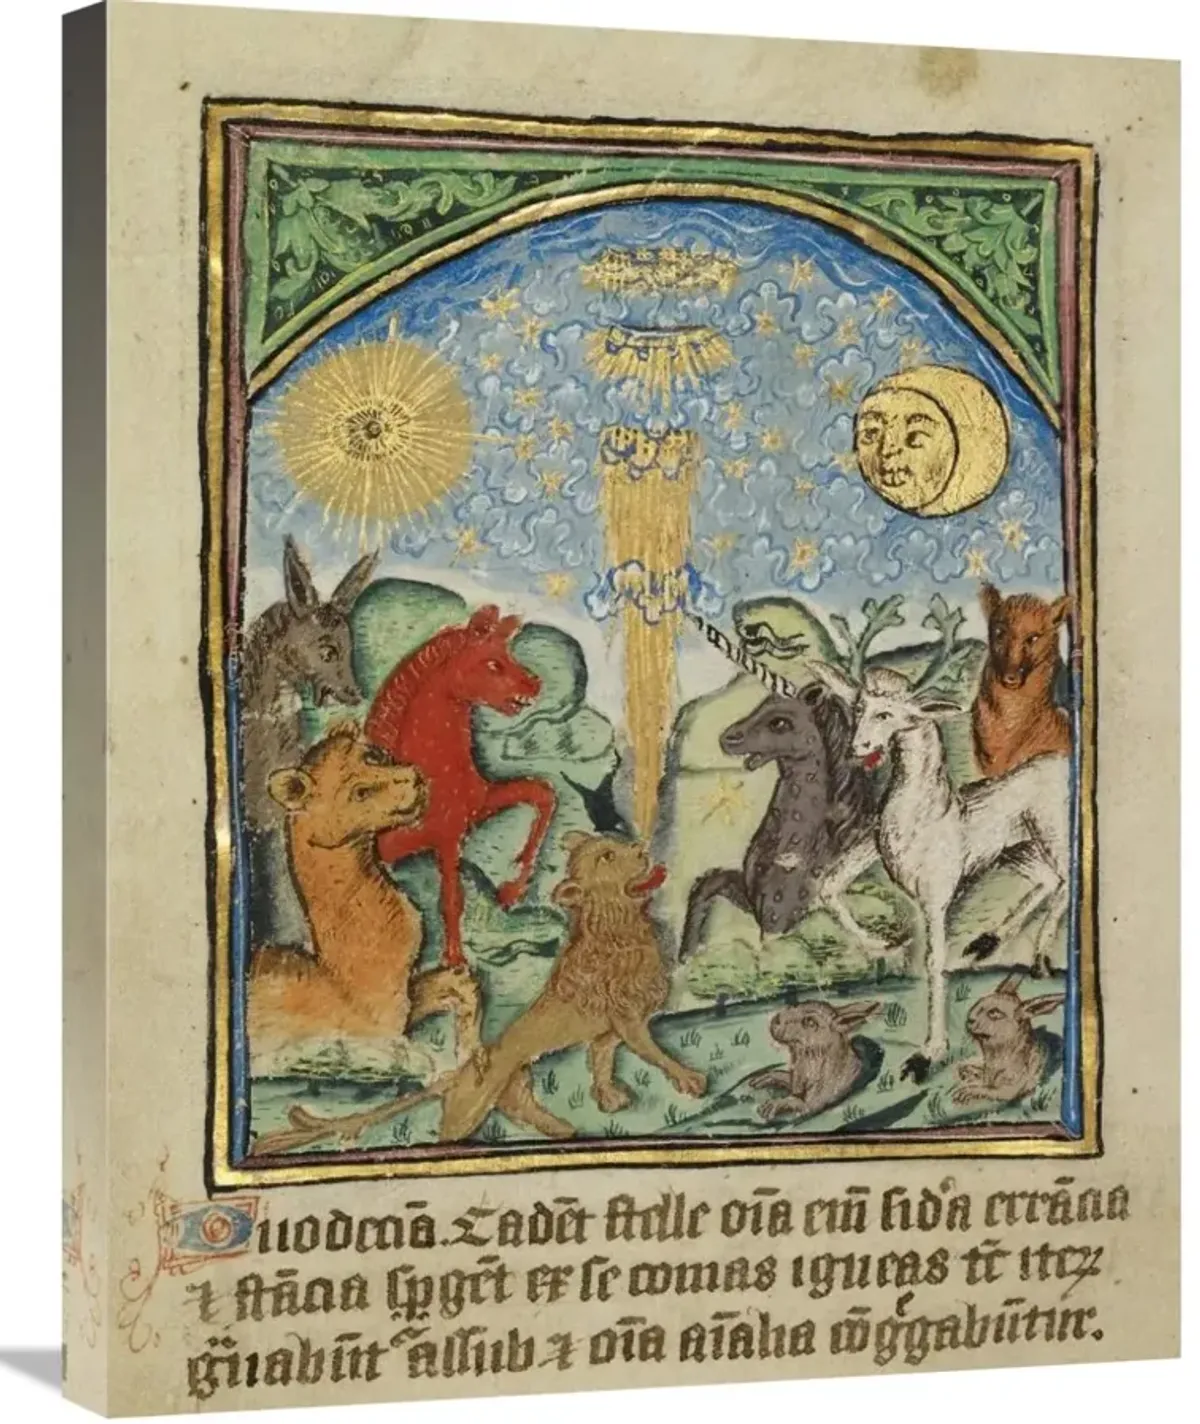 Duodecīa. Cadēt stelle oīa eīn sidꝰa errācia
⁊ stācia sp̄gēt ex se comas igneas tc̄ iteꝝ
gn̄abūt assub ⁊ oīa aīalia cōg̃gabūtur.